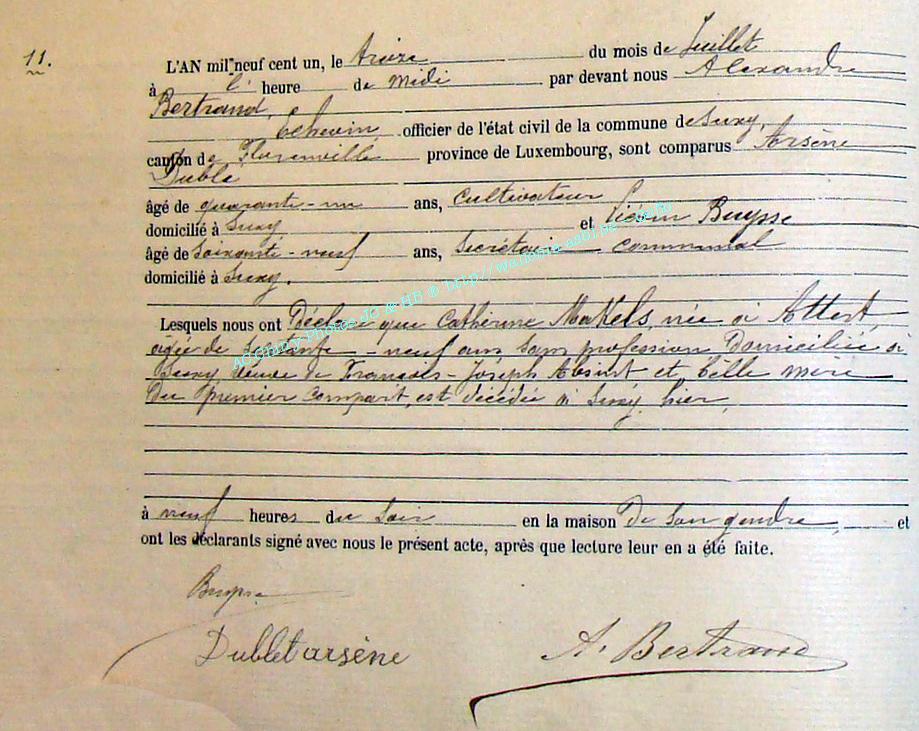 11.
L'AN mil neuf cent un, le treize du mois de Juillet
à l' heure de midi par devant nous Alexandre
Bertrand,
Echevin, officier de l'état civil de la commune de Suxy,
canton de Florenville province de Luxembourg, sont comparus Arsène
Dublé
âgé de quarante-un ans, Cultivateur
domicilié à Suxy et Buysse
âgé de Soixante-neuf ans, Secrétaire communal
domicilié à Suxy.
Lesquels nous ont Déclaré que Catherine Makels, née à Attert,
agée de -neuf ans, Sans profession Domiciliée à
Suxy, veuve de François-Joseph et belle mère
Du premier comparît, est décédée à Suxy, hier,
à neuf heures du soir en la maison De son gendre, et
ont les déclarants signé avec nous le présent acte, après que lecture leur en a été faite.
Buysse
Dublet arsène
A. Bertrand
ACGaumy Photos JC & HB © http://